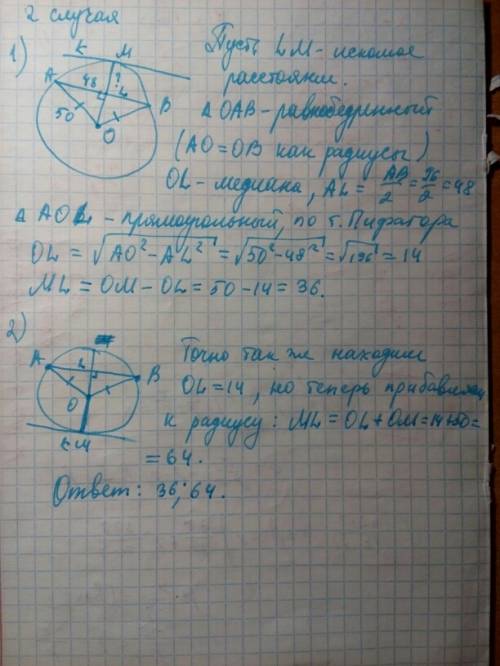 2 случая
1)
K M
A 48 ? L B
50
O
Пусть LM - искомое
расстояние.
△ OAB - равнобедренный
(AO = OB как радиусы)
OL - медиана, AL = AB/2 = 96/2 = 48
△ AOL - прямоугольный, по т. Пифагора
OL = √AO² - AL² = √50² - 48² = √196 = 14
ML = OM - OL = 50 - 14 = 36.
2)
A L B
O
K M
Точно так же находим
OL = 14, но теперь прибавляем
к радиусу: ML = OL + OM = 14 + 50 =
= 64.
Ответ: 36; 64.